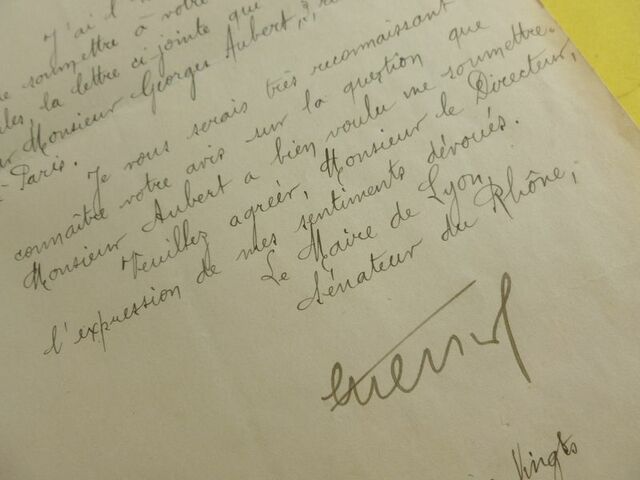 J'ai l'
soumettre à votre
la lettre ci-jointe que
Monsieur Georges Aubert, 3, r
à Paris.
Je vous serais très reconnaissant
connaître votre avis sur la question que
Monsieur Aubert a bien voulu me soumettre.
Veuillez agréer, Monsieur le Directeur,
l'expression de mes sentiments dévoués.
Le Maire de Lyon,
Sénateur du Rhône,
Vingts